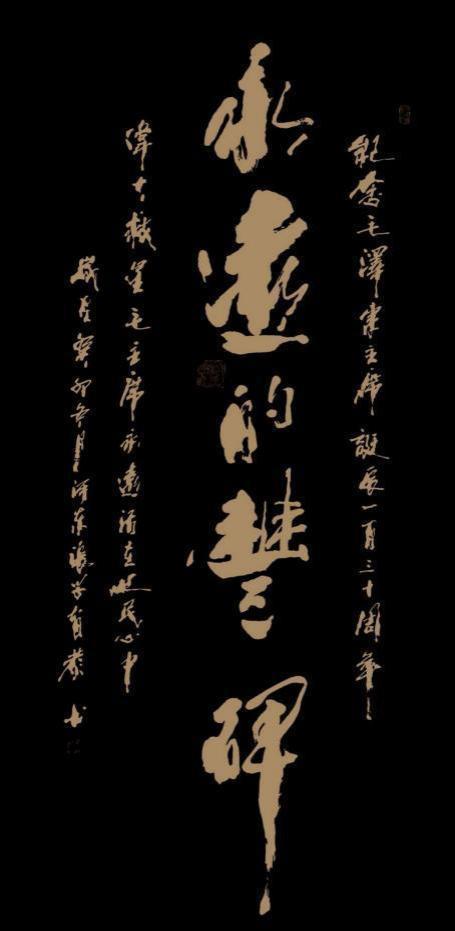 紀念毛澤東主席誕辰一百三十周年
永遠的豐碑
偉大救星毛主席永遠活在人民心中
歲在癸卯冬月河東張學恭书